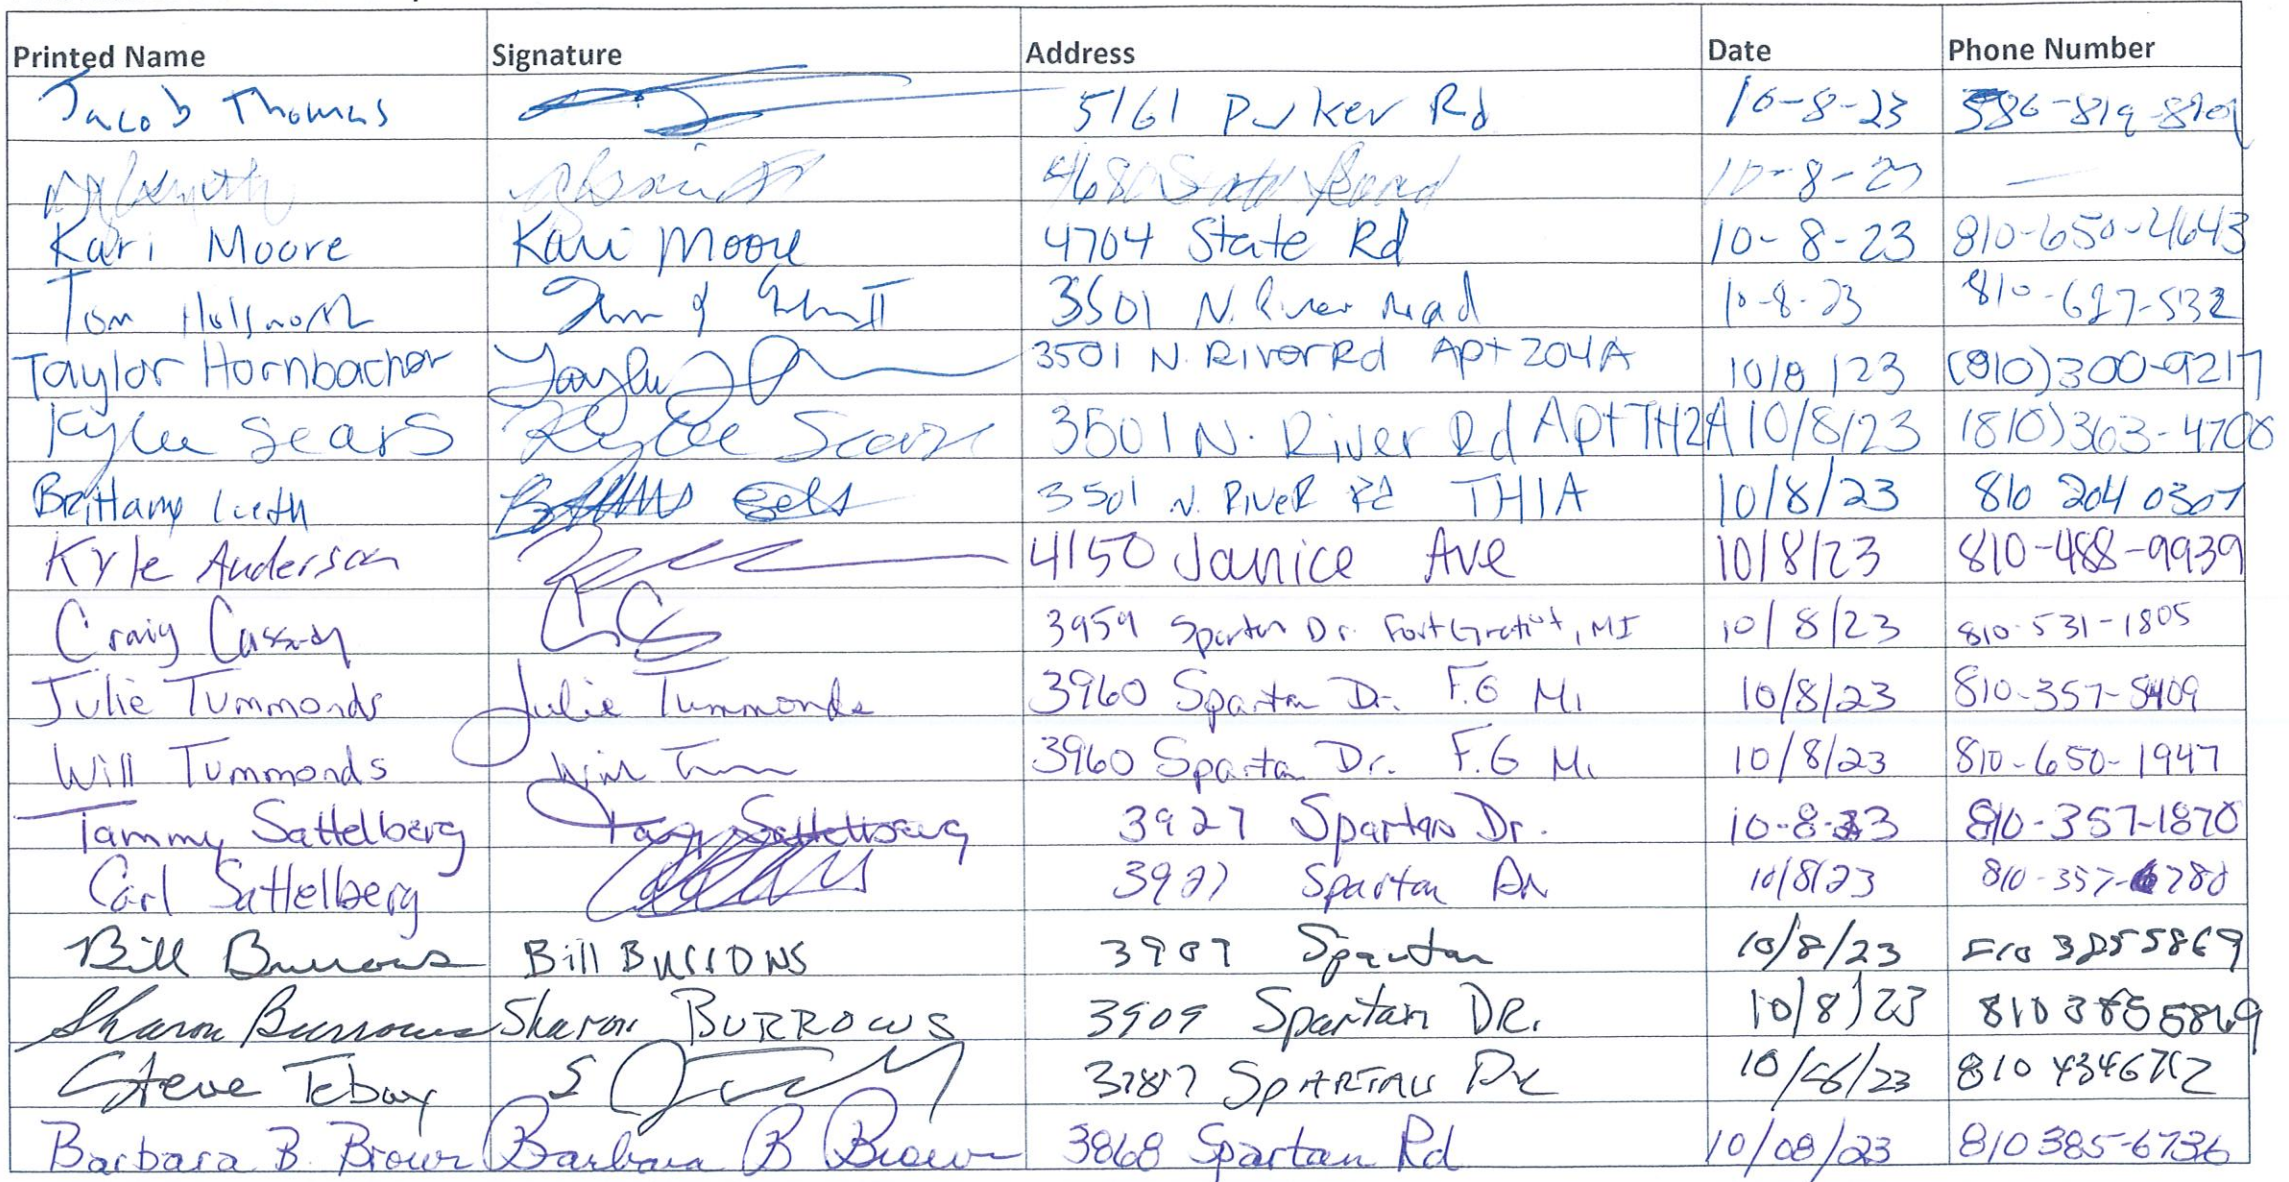 Printed Name Signature Address Date Phone Number
Jacob Thomas 5161 Parker Rd 10-8-23 586-819-8909
468 State Road 10-8-23 —
Kari Moore Kari Moore 4704 State Rd 10-8-23 810-650-2643
Tom 3501 N. River Road 10-8-23 810-627-532
Taylor Hornbacher Taylor 3501 N. River Rd Apt 204A 10/8/23 (810)300-9217
Kylee Sears Kylee Sears 3501 N. River Rd Apt TH2A 10/8/23 (810)363-4708
Brittany 3501 N. RIVER Rd TH1A 10/8/23 810 204 0307
Kyle Anderson 4150 Janice Ave 10/8/23 810-488-9939
Craig Cassidy CC 3959 Spartan Dr. Fort Gratiot, MI 10/8/23 810-531-1805
Julie Tummonds Julie Tummonds 3960 Spartan Dr. F.G Mi 10/8/23 810-357-8409
Will Tummonds Will 3960 Spartan Dr. F.G Mi 10/8/23 810-650-1947
Tammy Sattelberg Tammy Sattelberg 3927 Spartan Dr. 10-8-23 810-357-1870
Carl Sattelberg 3927 Spartan Dr 10/8/23 810-357-6780
Bill Burrows Bill Burrows 3909 Spartan 10/8/23 810 3855869
Sharon Burrows Sharon BURROWS 3909 Spartan DR. 10/8/23 810 385 5869
Steve Tebay S 3787 SPARTAN Dr 10/8/23 810 4346712
Barbara B. Brown Barbara B Brown 3868 Spartan Rd 10/08/23 810 385-6736